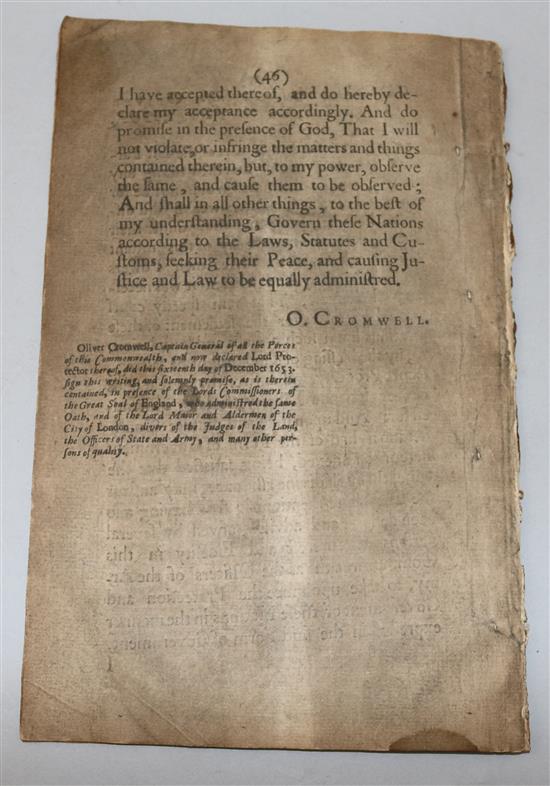 (46)
I have accepted thereof, and do hereby de-
clare my acceptance accordingly. And do
promiſe in the preſence of God, That I will
not violate, or infringe the matters and things
contained therein, but, to my power, obſerve
the ſame, and cauſe them to be obſerved;
And ſhall in all other things, to the beſt of
my underſtanding, Govern theſe Nations
according to the Laws, Statutes and Cu-
ſtoms, ſeeking their Peace, and cauſing Ju-
ſtice and Law to be equally adminiſtred.
O. CROMWELL.
Oliver Cromwell, Captain General of all the Forces
of this Commonwealth, and now declared Lord Pro-
tector thereof, did this ſixteenth day of December 1653.
ſign this writing, and ſolemnly promiſe, as is therein
contained, in preſence of the Lords Commiſſioners of
the Great Seal of England, who adminiſtred the ſame
Oath, and of the Lord Maior and Aldermen of the
City of London, divers of the Judges of the Land,
the Officers of State and Army, and many other per-
ſons of quality.